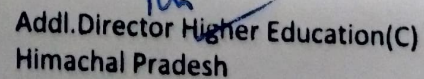 Addl.Director Higher Education(C)
Himachal Pradesh